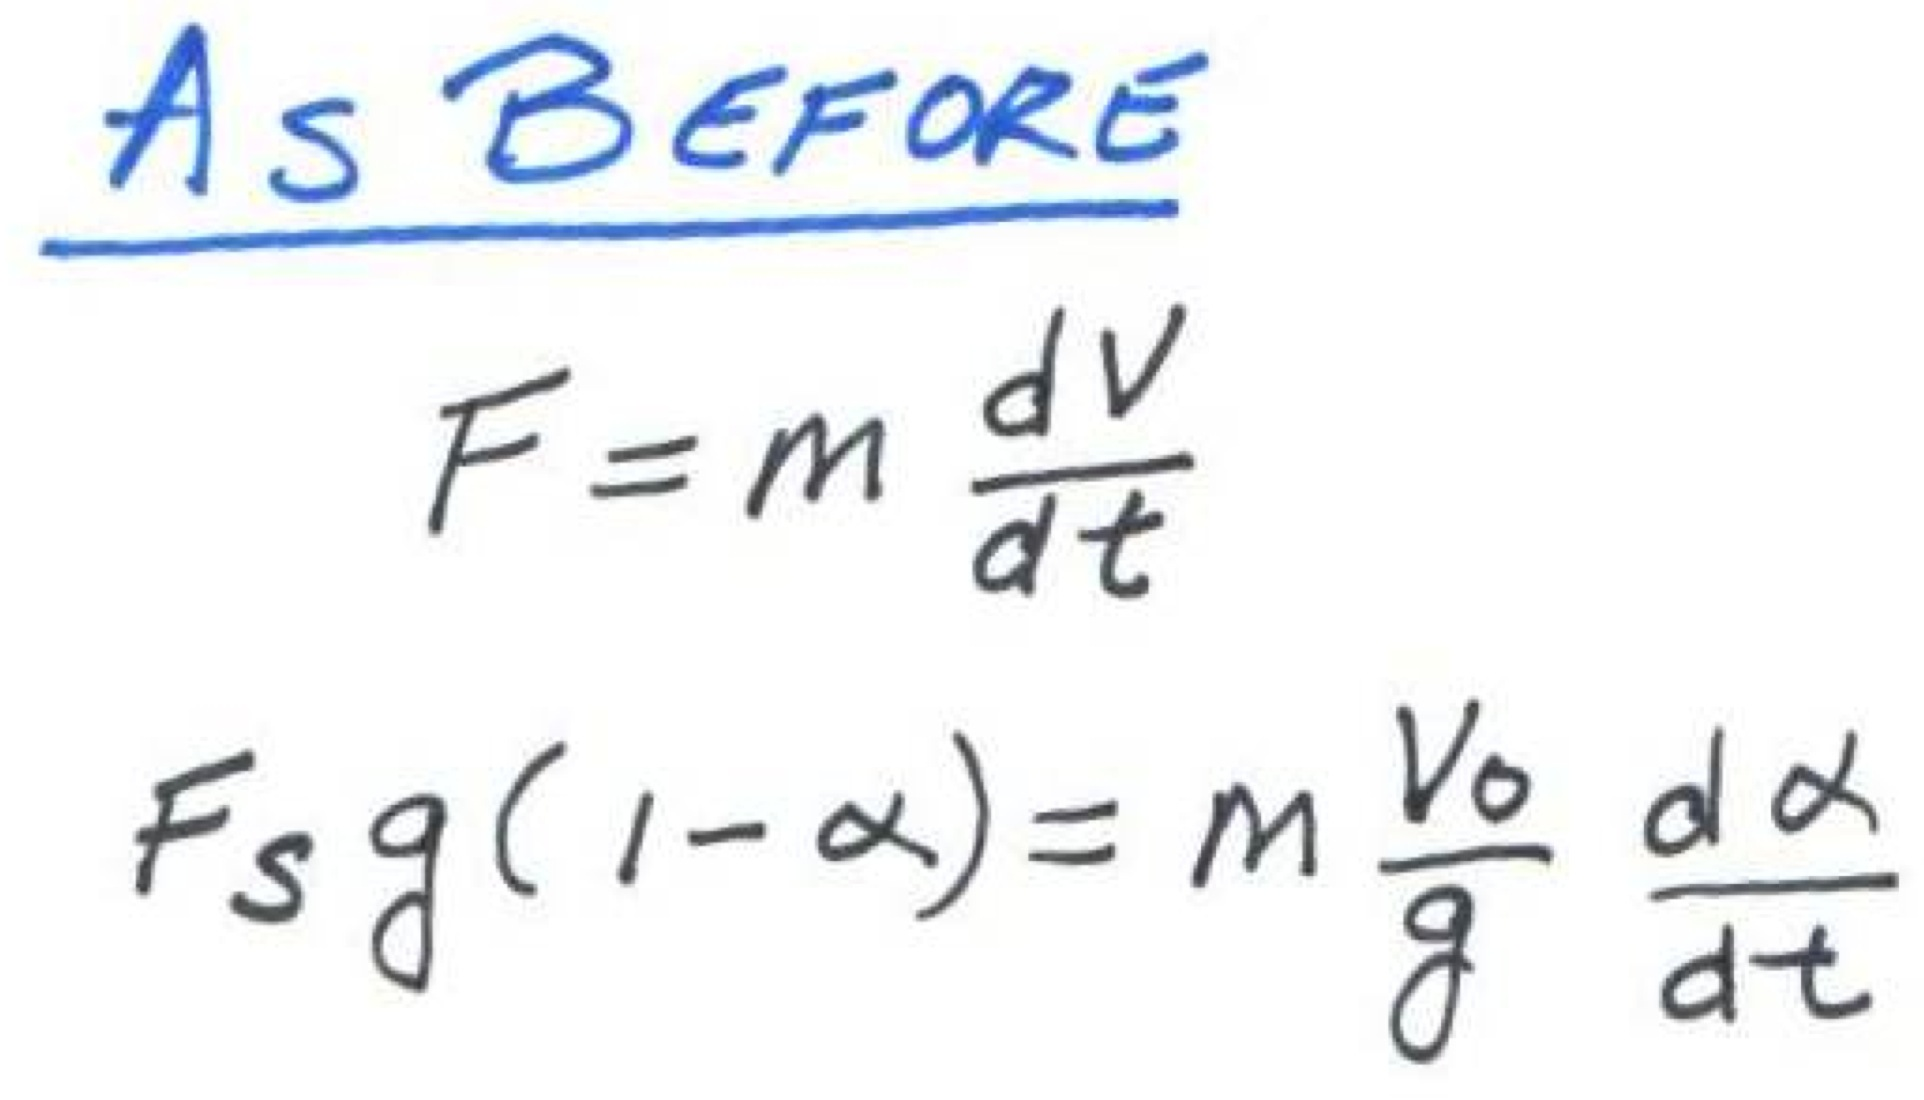 As BEFORE
F = m dV/dt
Fs g (1 - α) = m Vo/g dα/dt